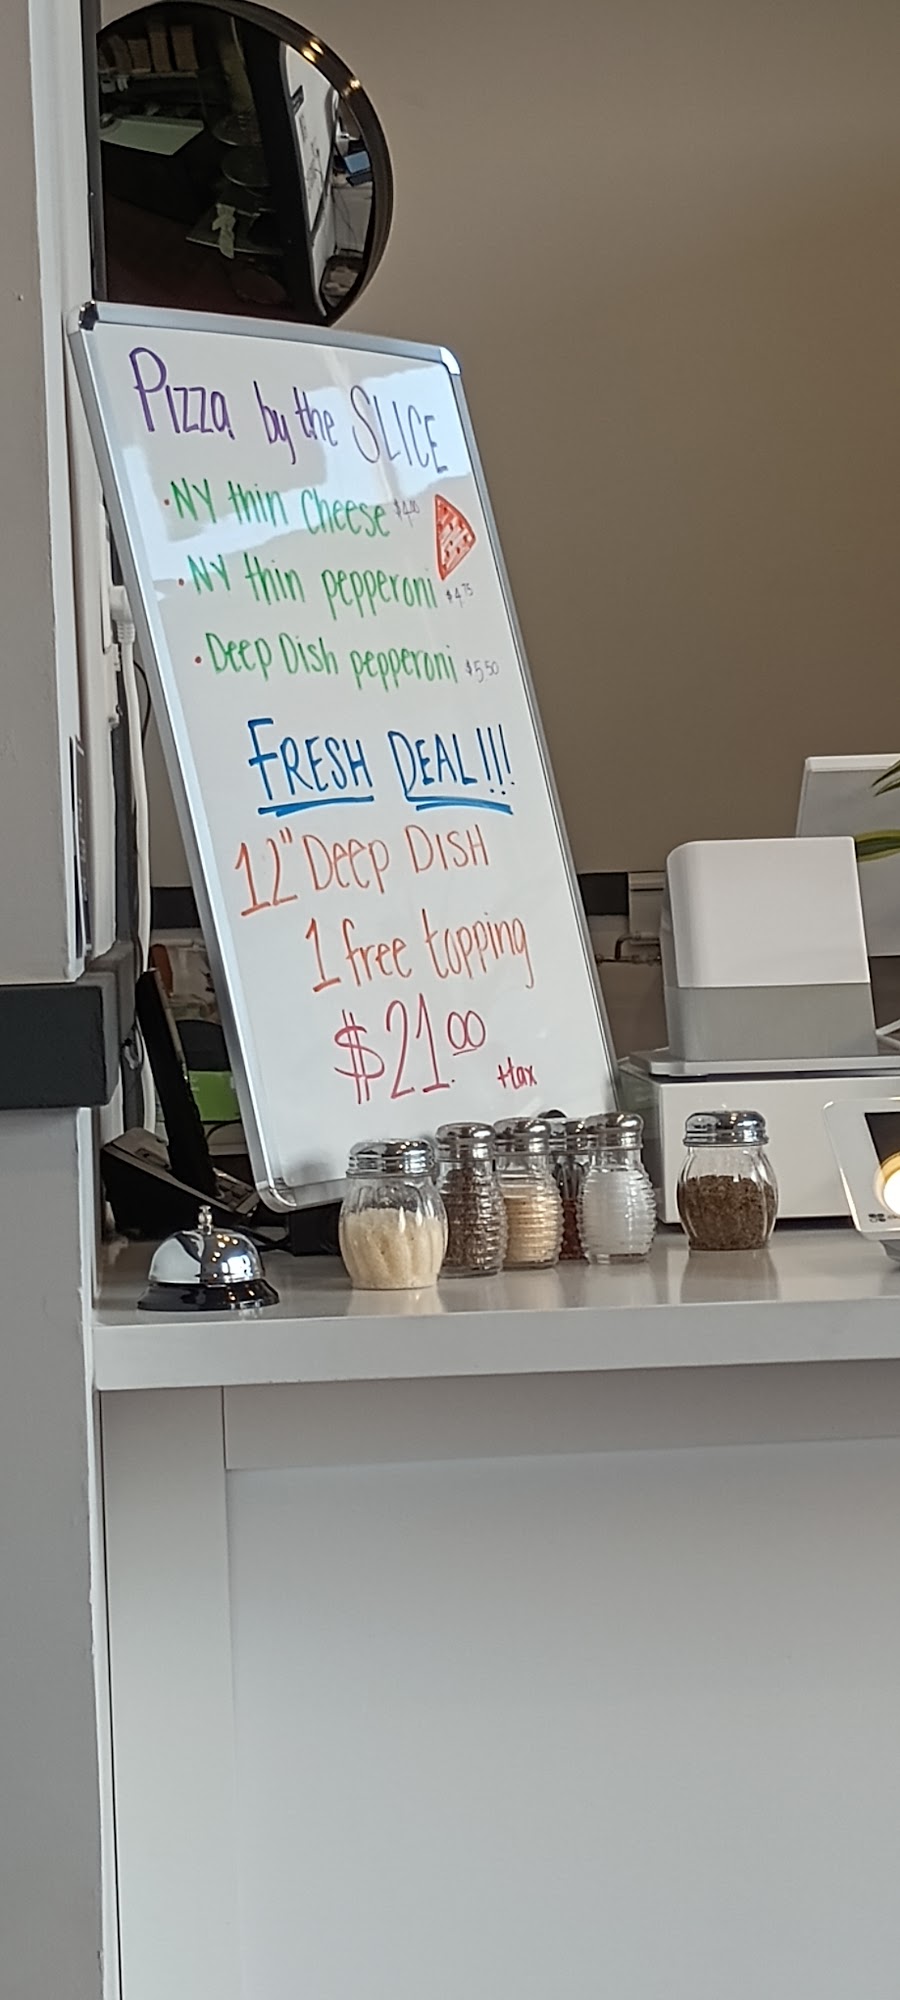 Pizza by the SLICE
• NY thin cheese $4.00
• NY thin pepperoni $4.75
• Deep Dish pepperoni $5.50
FRESH DEAL!!!
12" Deep DISH
1 free topping
$21.00 +tax